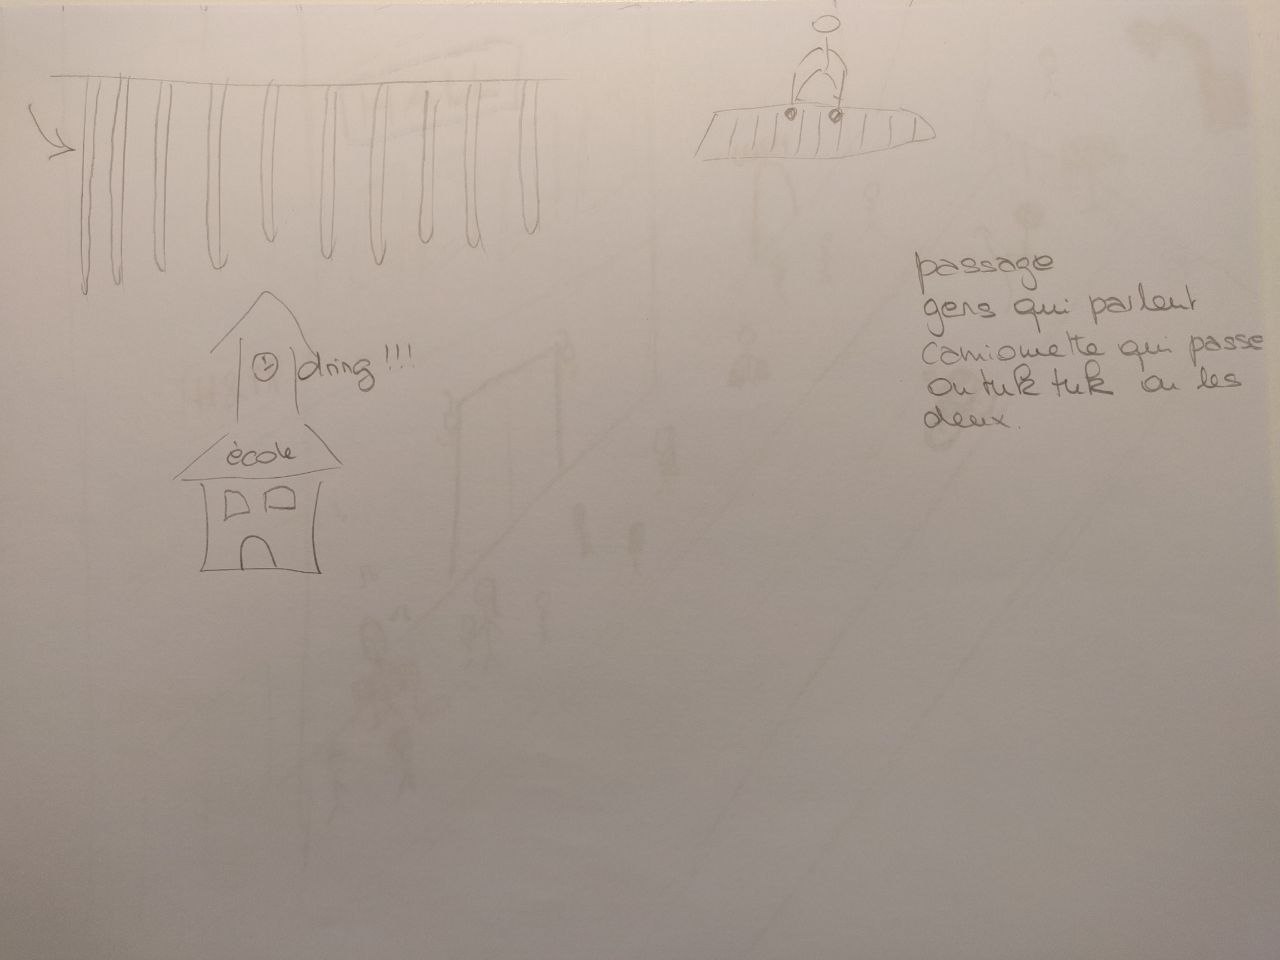 dring !!!
école
passage
gens qui parlent
camionette qui passe
ou tuk tuk ou les
deux.